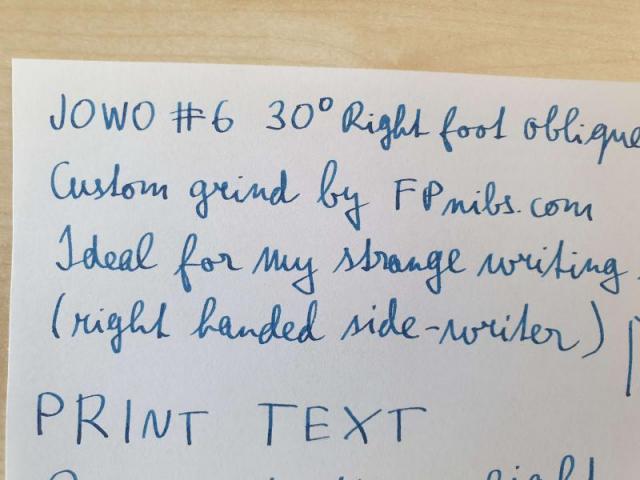 JOWO #6 30° Right foot oblique
Custom grind by FPnibs.com
Ideal for my strange writing
(right handed side-writer)
PRINT TEXT
right